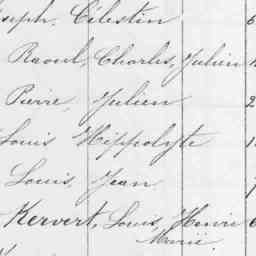 Célestin
Raoul, Charles, Julien
Pierre, Julien
Louis Hippolyte
Louis, Jean
Kervert, Louis, Henri
Marie.